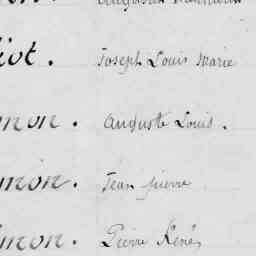 iot. Joseph Louis Marie
mon. Auguste Louis.
mon. Jean pierre
mon. Pierre René